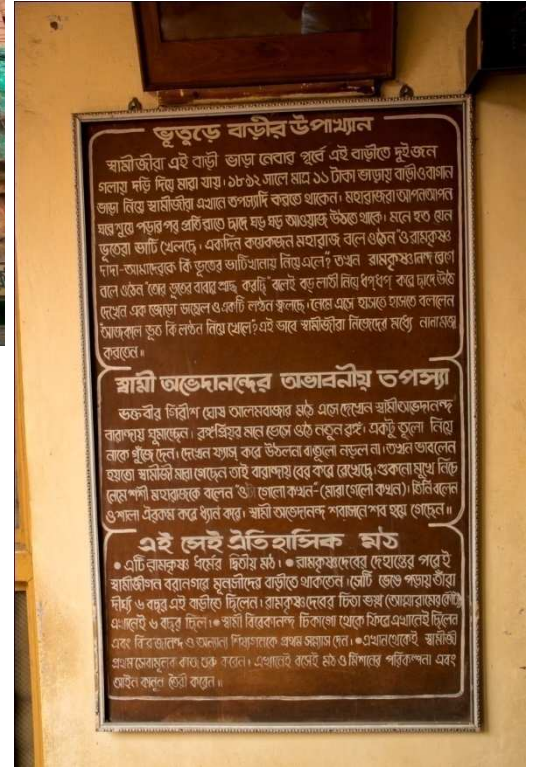 ভূতুড়ে বাড়ীর উপাখ্যান
স্বামীজীরা এই বাড়ী ভাড়া নেবার পূর্বে এই বাড়ীতে দুইজন
গলায় দড়ি দিয়ে মারা যায়। ১৮৯২ সালে মাত্র ১১ টাকা ভাড়ায় বাড়ী ও বাগান
ভাড়া নিয়ে স্বামীজীরা এখানে তপস্যাদি করতে থাকেন। মহারাজরা আপন আপন
ঘরে শুয়ে পড়ার পর প্রতি রাতে ছাদে ঘড় ঘড় আওয়াজ উঠতে থাকে। মনে হত যেন
ভূতেরা ভাটি খেলছে। একদিন কয়েকজন মহারাজ বলে ওঠেন "ও রামকৃষ্ণ
দাদা-আমাদেরকে কি ভূতের ভাটিখানায় নিয়ে এলে?" তখন রামকৃষ্ণানন্দ রেগে
বলে ওঠেন "তোর ভূতের বাবার শ্রাদ্ধ করছি" বলেই বড় লাঠী নিয়ে ধপ্ ধপ্ করে ছাদে উঠে
দেখেন এক জোড়া ডাম্বেল ও একটি লণ্ঠন জ্বলছে। নেমে এসে হাসতে হাসতে বললেন
আজকাল ভূত কি লণ্ঠন নিয়ে খেলে? এই ভাবে স্বামীজীরা নিজেদের মধ্যে নানা মজা
করতেন॥
স্বামী অভেদানন্দের অভাবনীয় তপস্যা
ভক্তবীর গিরীশ ঘোষ আলমবাজার মঠে এসে দেখেন স্বামী অভেদানন্দ
বারান্দায় ঘুমাচ্ছেন। রঙ্গপ্রিয়র মনে ভেসে ওঠে নতুন রঙ্গ। একটু তুলো নিয়ে
নাকে গুঁজে দেন। দেখেন ফ্যাস্ করে উঠলনা বা তুলো নড়ল না। তখন ভাবলেন
হয়তো স্বামীজী মারা গেছেন তাই বারান্দায় বের করে রেখেছে। শুকনো মুখে নিচে
নেমে শশী মহারাজকে বলেন গেলো কখন-(মারা গেলো কখন)। তিনি বলেন
ও শালা ঐরকম করে ধ্যান করে। স্বামী অভেদানন্দ শবাসনে শব হয়ে গেছেন॥
এই সেই ঐতিহাসিক মঠ
• এটি রামকৃষ্ণ ধর্মের দ্বিতীয় মঠ। • রামকৃষ্ণদেবের দেহান্তের পরেই
স্বামীজীগন বরানগরে মুনসীদের বাড়ীতে থাকতেন। সেটি ভেঙে পড়ায় তাঁরা
দীর্ঘ ৬ বছর এই বাড়ীতে ছিলেন। রামকৃষ্ণদেবের চিতা ভস্ম (আত্মারামের কৌটা)
এখানেই ৬ বছর ছিল। • স্বামী বিবেকানন্দ চিকাগো থেকে ফিরে এখানেই ছিলেন
এবং বিরজানন্দ ও অন্যান্য শিষ্যগণকে প্রথম সন্ন্যাস দেন। • এখান থেকেই স্বামীজী
প্রথম সেবামূলক কাজ শুরু করেন। এখানেই বসেই মঠ ও মিশনের পরিকল্পনা এবং
আইন কানুন তৈরী করেন॥